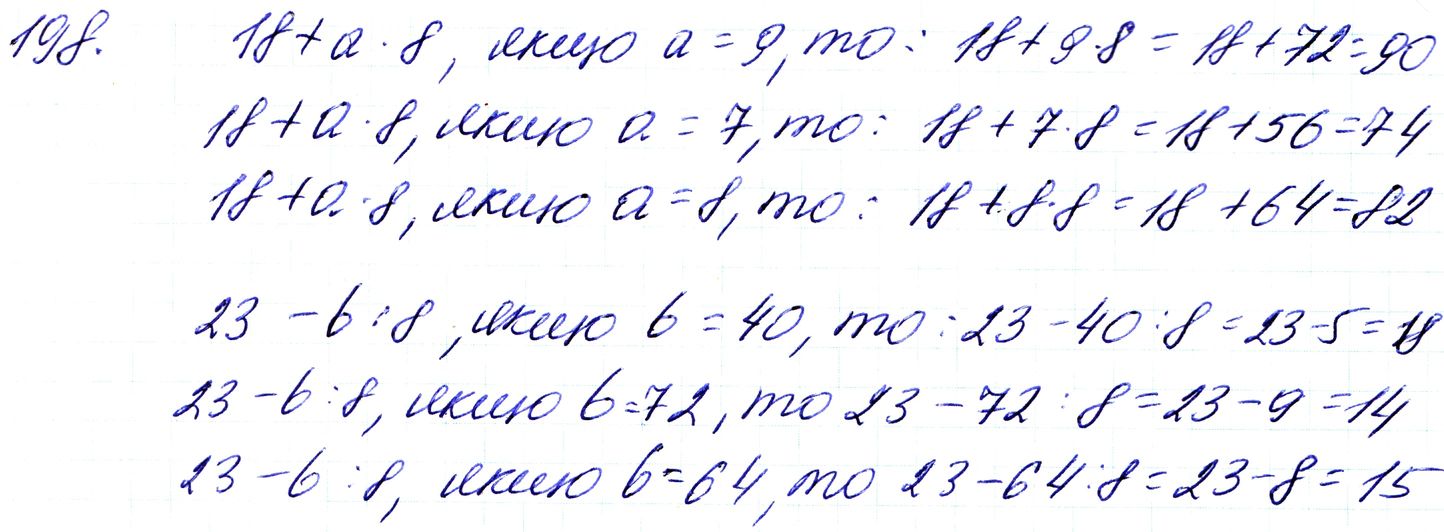 198. 18+a·8, якщо a=9, то: 18+9·8=18+72=90
18+a·8, якщо a=7, то: 18+7·8=18+56=74
18+a·8, якщо a=8, то: 18+8·8=18+64=82
23-b:8, якщо b=40, то: 23-40:8=23-5=18
23-b:8, якщо b=72, то 23-72:8=23-9=14
23-b:8, якщо b=64, то 23-64:8=23-8=15